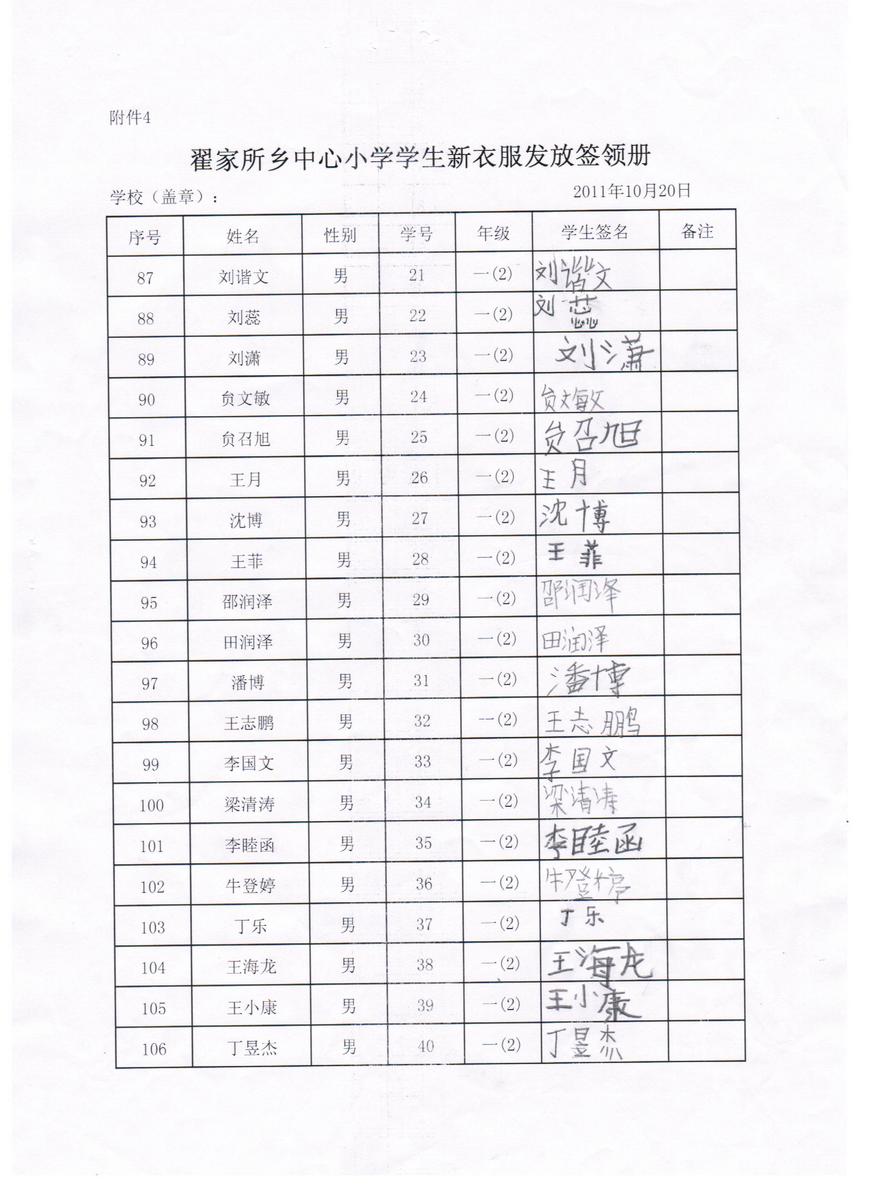 附件4
翟家所乡中心小学学生新衣服发放签领册
学校（盖章）： 2011年10月20日
序号 姓名 性别 学号 年级 学生签名 备注
87 刘谐文 男 21 一(2) 刘谐文
88 刘蕊 男 22 一(2) 刘蕊
89 刘潇 男 23 一(2) 刘潇
90 贠文敏 男 24 一(2) 贠文敏
91 贠召旭 男 25 一(2) 贠召旭
92 王月 男 26 一(2) 王月
93 沈博 男 27 一(2) 沈博
94 王菲 男 28 一(2) 王菲
95 邵润泽 男 29 一(2) 邵润泽
96 田润泽 男 30 一(2) 田润泽
97 潘博 男 31 一(2) 潘博
98 王志鹏 男 32 一(2) 王志鹏
99 李国文 男 33 一(2) 李国文
100 梁清涛 男 34 一(2) 梁清涛
101 李睦函 男 35 一(2) 李睦函
102 牛登婷 男 36 一(2) 牛登婷
103 丁乐 男 37 一(2) 丁乐
104 王海龙 男 38 一(2) 王海龙
105 王小康 男 39 一(2) 王小康
106 丁昱杰 男 40 一(2) 丁昱杰